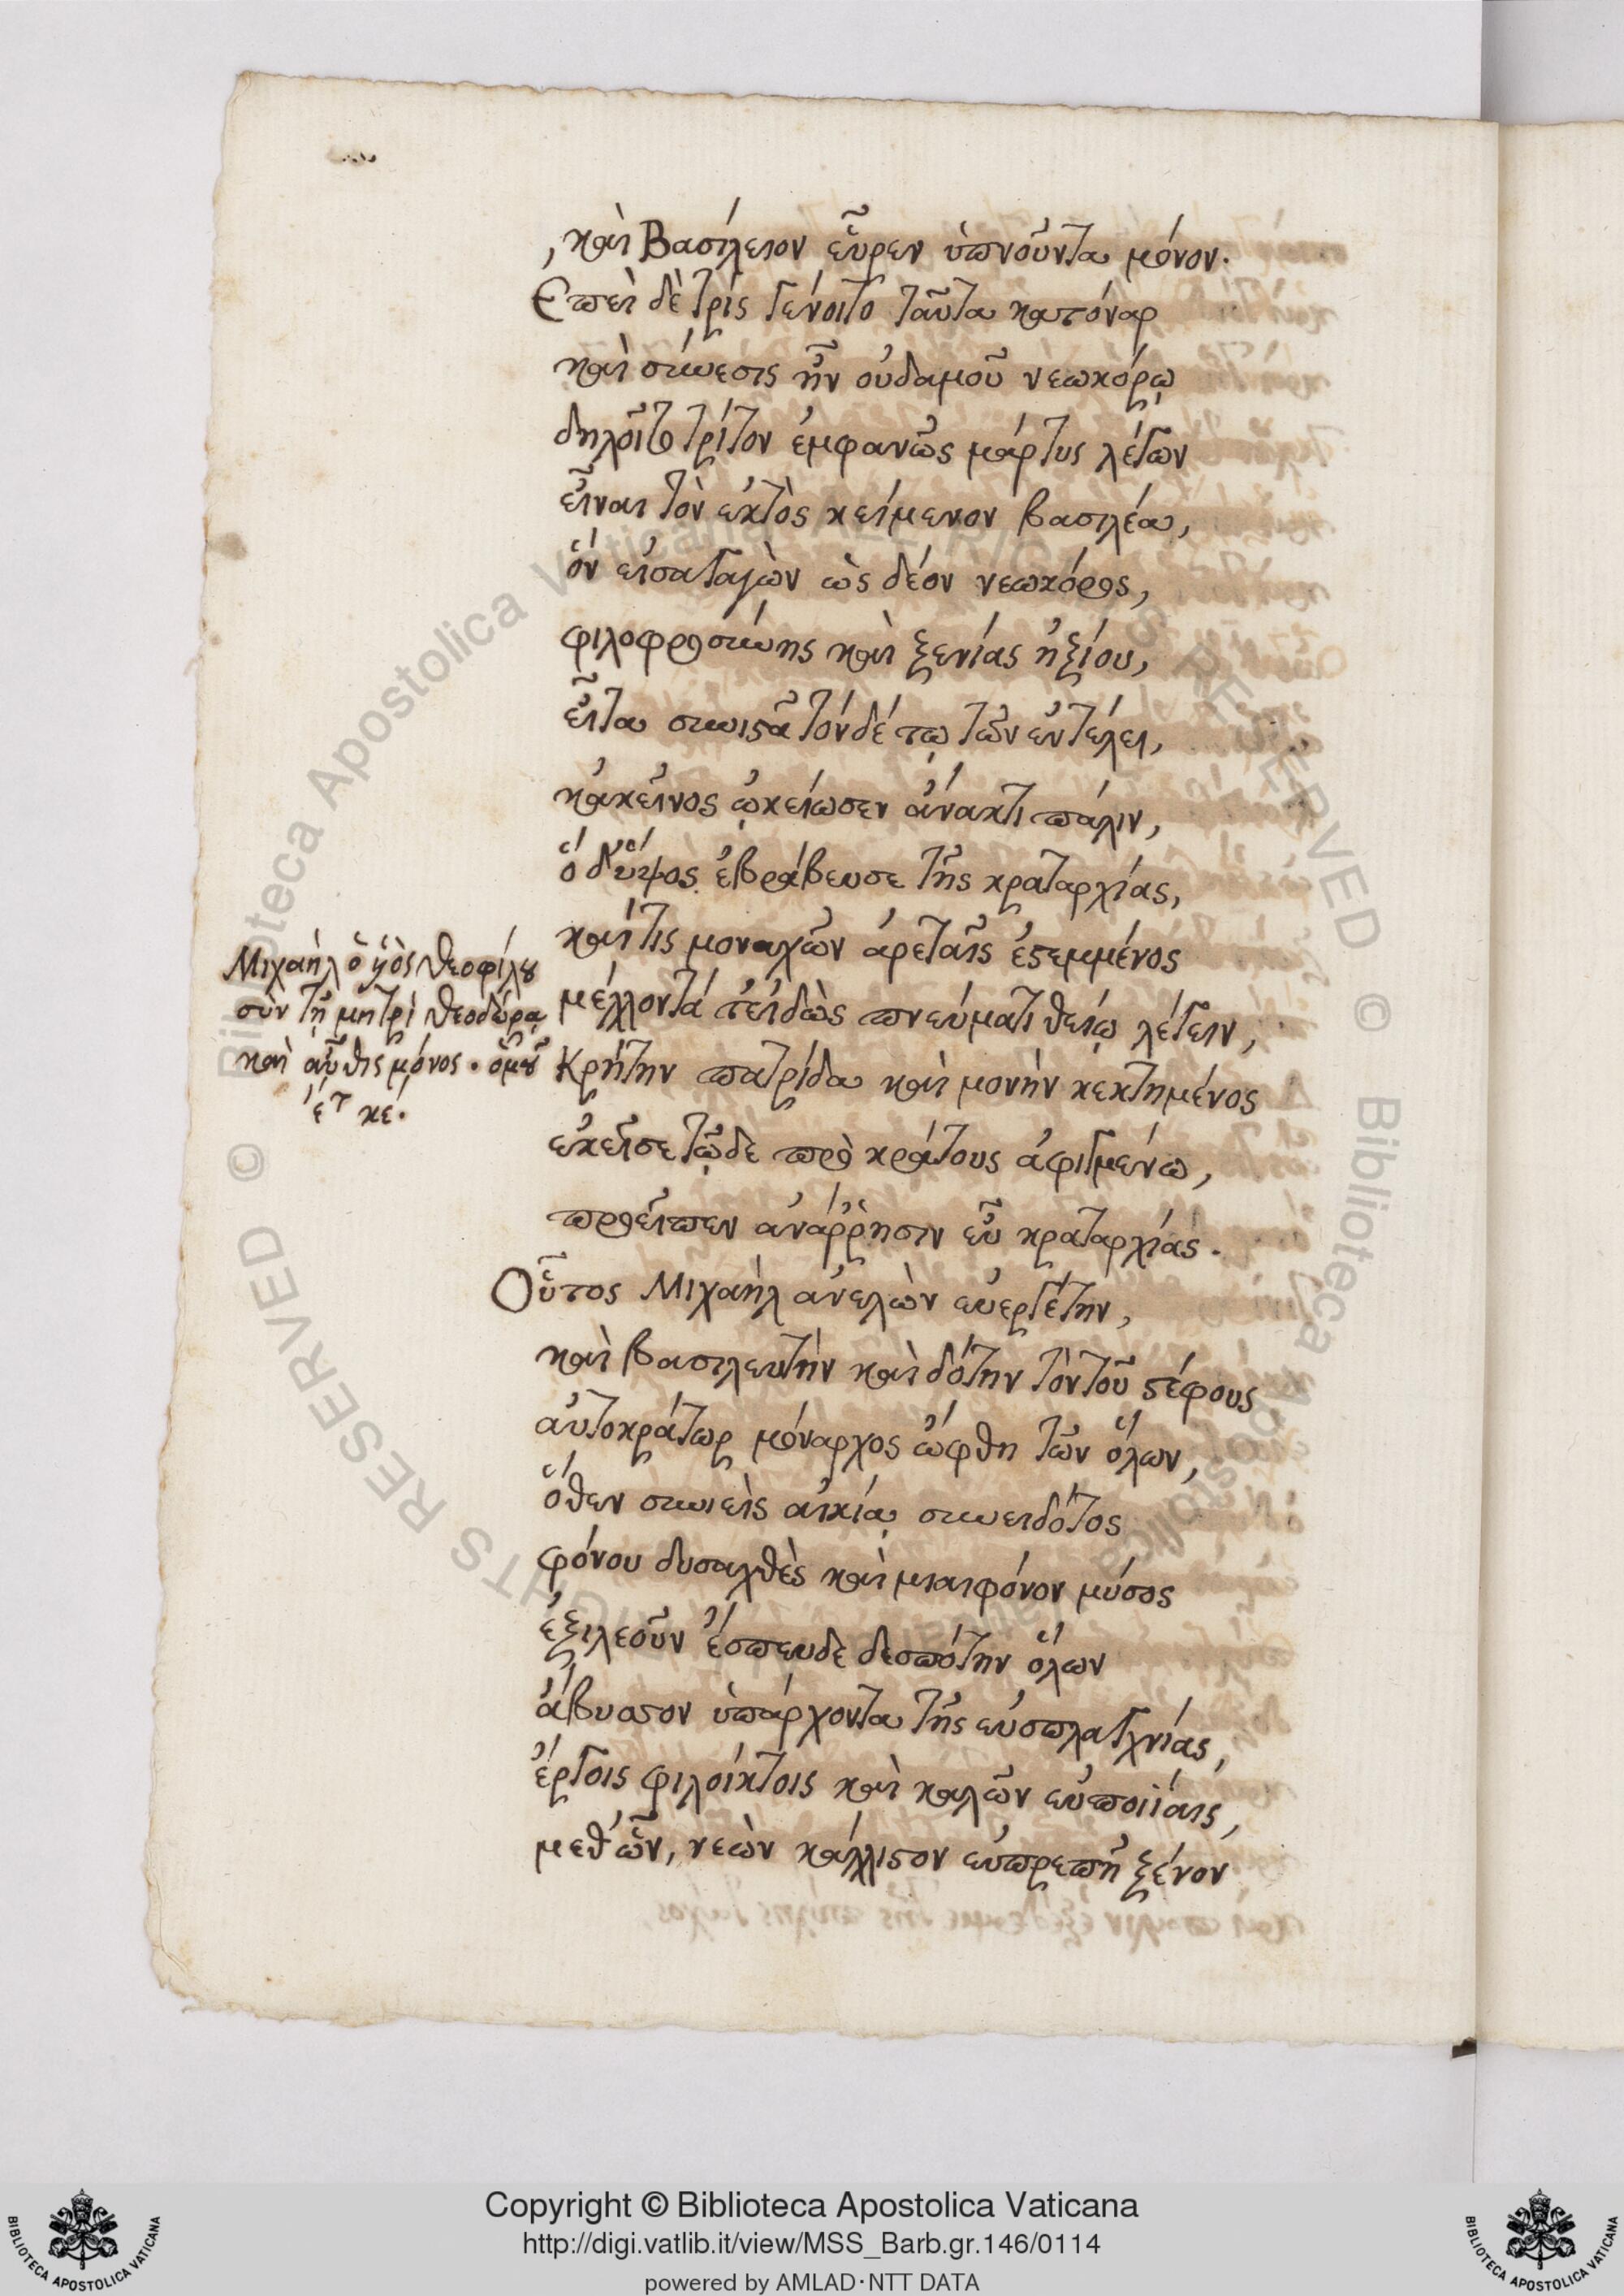 καὶ Βασίλειον εὗρεν ὑπνοῦντα μόνον.
Επεὶ δὲ τρὶς γένοιτο ταῦτα κατόναρ
καὶ σύνεσις ἦν οὐδαμοῦ νεωκόρῳ
δηλοῖ τὸ τρίτον ἐμφανῶς μάρτυς λέγων
εἶναι τὸν ἐκτὸς κείμενον βασιλέα,
ὅν εἰσαγαγὼν ὡς δέον νεωκόρος,
φιλοφροσύνης καὶ ξενίας ἠξίου,
εἶτα συνιστᾷ τόνδέ τῳ τῶν ἐν τέλει,
κἀκεῖνος ᾠκείωσεν ἄνακτι πάλιν,
ὁ δ' ὕψος ἐβράβευσε τῆς κραταρχίας,
καί τις μοναχῶν ἀρεταῖς ἐστεμμένος
Μιχαὴλ ὁ ὑὸς Θεοφίλου
σὺν τῇ μητρὶ Θεοδώρᾳ
καὶ αὖθις μόνος. ὁμοῦ
ἔτ κέ.
μέλλοντά τ' εἰδὼς πνεύματι θείῳ λέγειν,
Κρήτην πατρίδα καὶ μονὴν κεκτημένος
ἐκεῖσε τῷδε πρὸ κράτους ἀφιγμένω,
προεῖπεν ἀνάῤῥησιν εὖ κραταρχίας.
Οὗτος Μιχαὴλ ἀνελὼν εὐεργέτην,
καὶ βασιλευτὴν καὶ δότην τὸν τοῦ στέφους
αὐτοκράτωρ μόναρχος ὤφθη τῶν ὅλων,
ὅθεν συνιεὶς αἰκίᾳ συνειδότος
φόνου δυσαχθὲς καὶ μιαιφόνον μύσος
ἐξιλεοῦν ἔσπευδε δεσπότην ὅλων
ἄβυσσον ὑπάρχοντα τῆς εὐσπλαγχνίας,
ἔργοις φιλοίκτοις καὶ καλῶν εὐποιΐαις,
μεθ' ὧν, νεὼν κάλλιστον εὐπρεπῆ ξένον
Copyright © Biblioteca Apostolica Vaticana
http://digi.vatlib.it/view/MSS_Barb.gr.146/0114
powered by AMLAD·NTT DATA